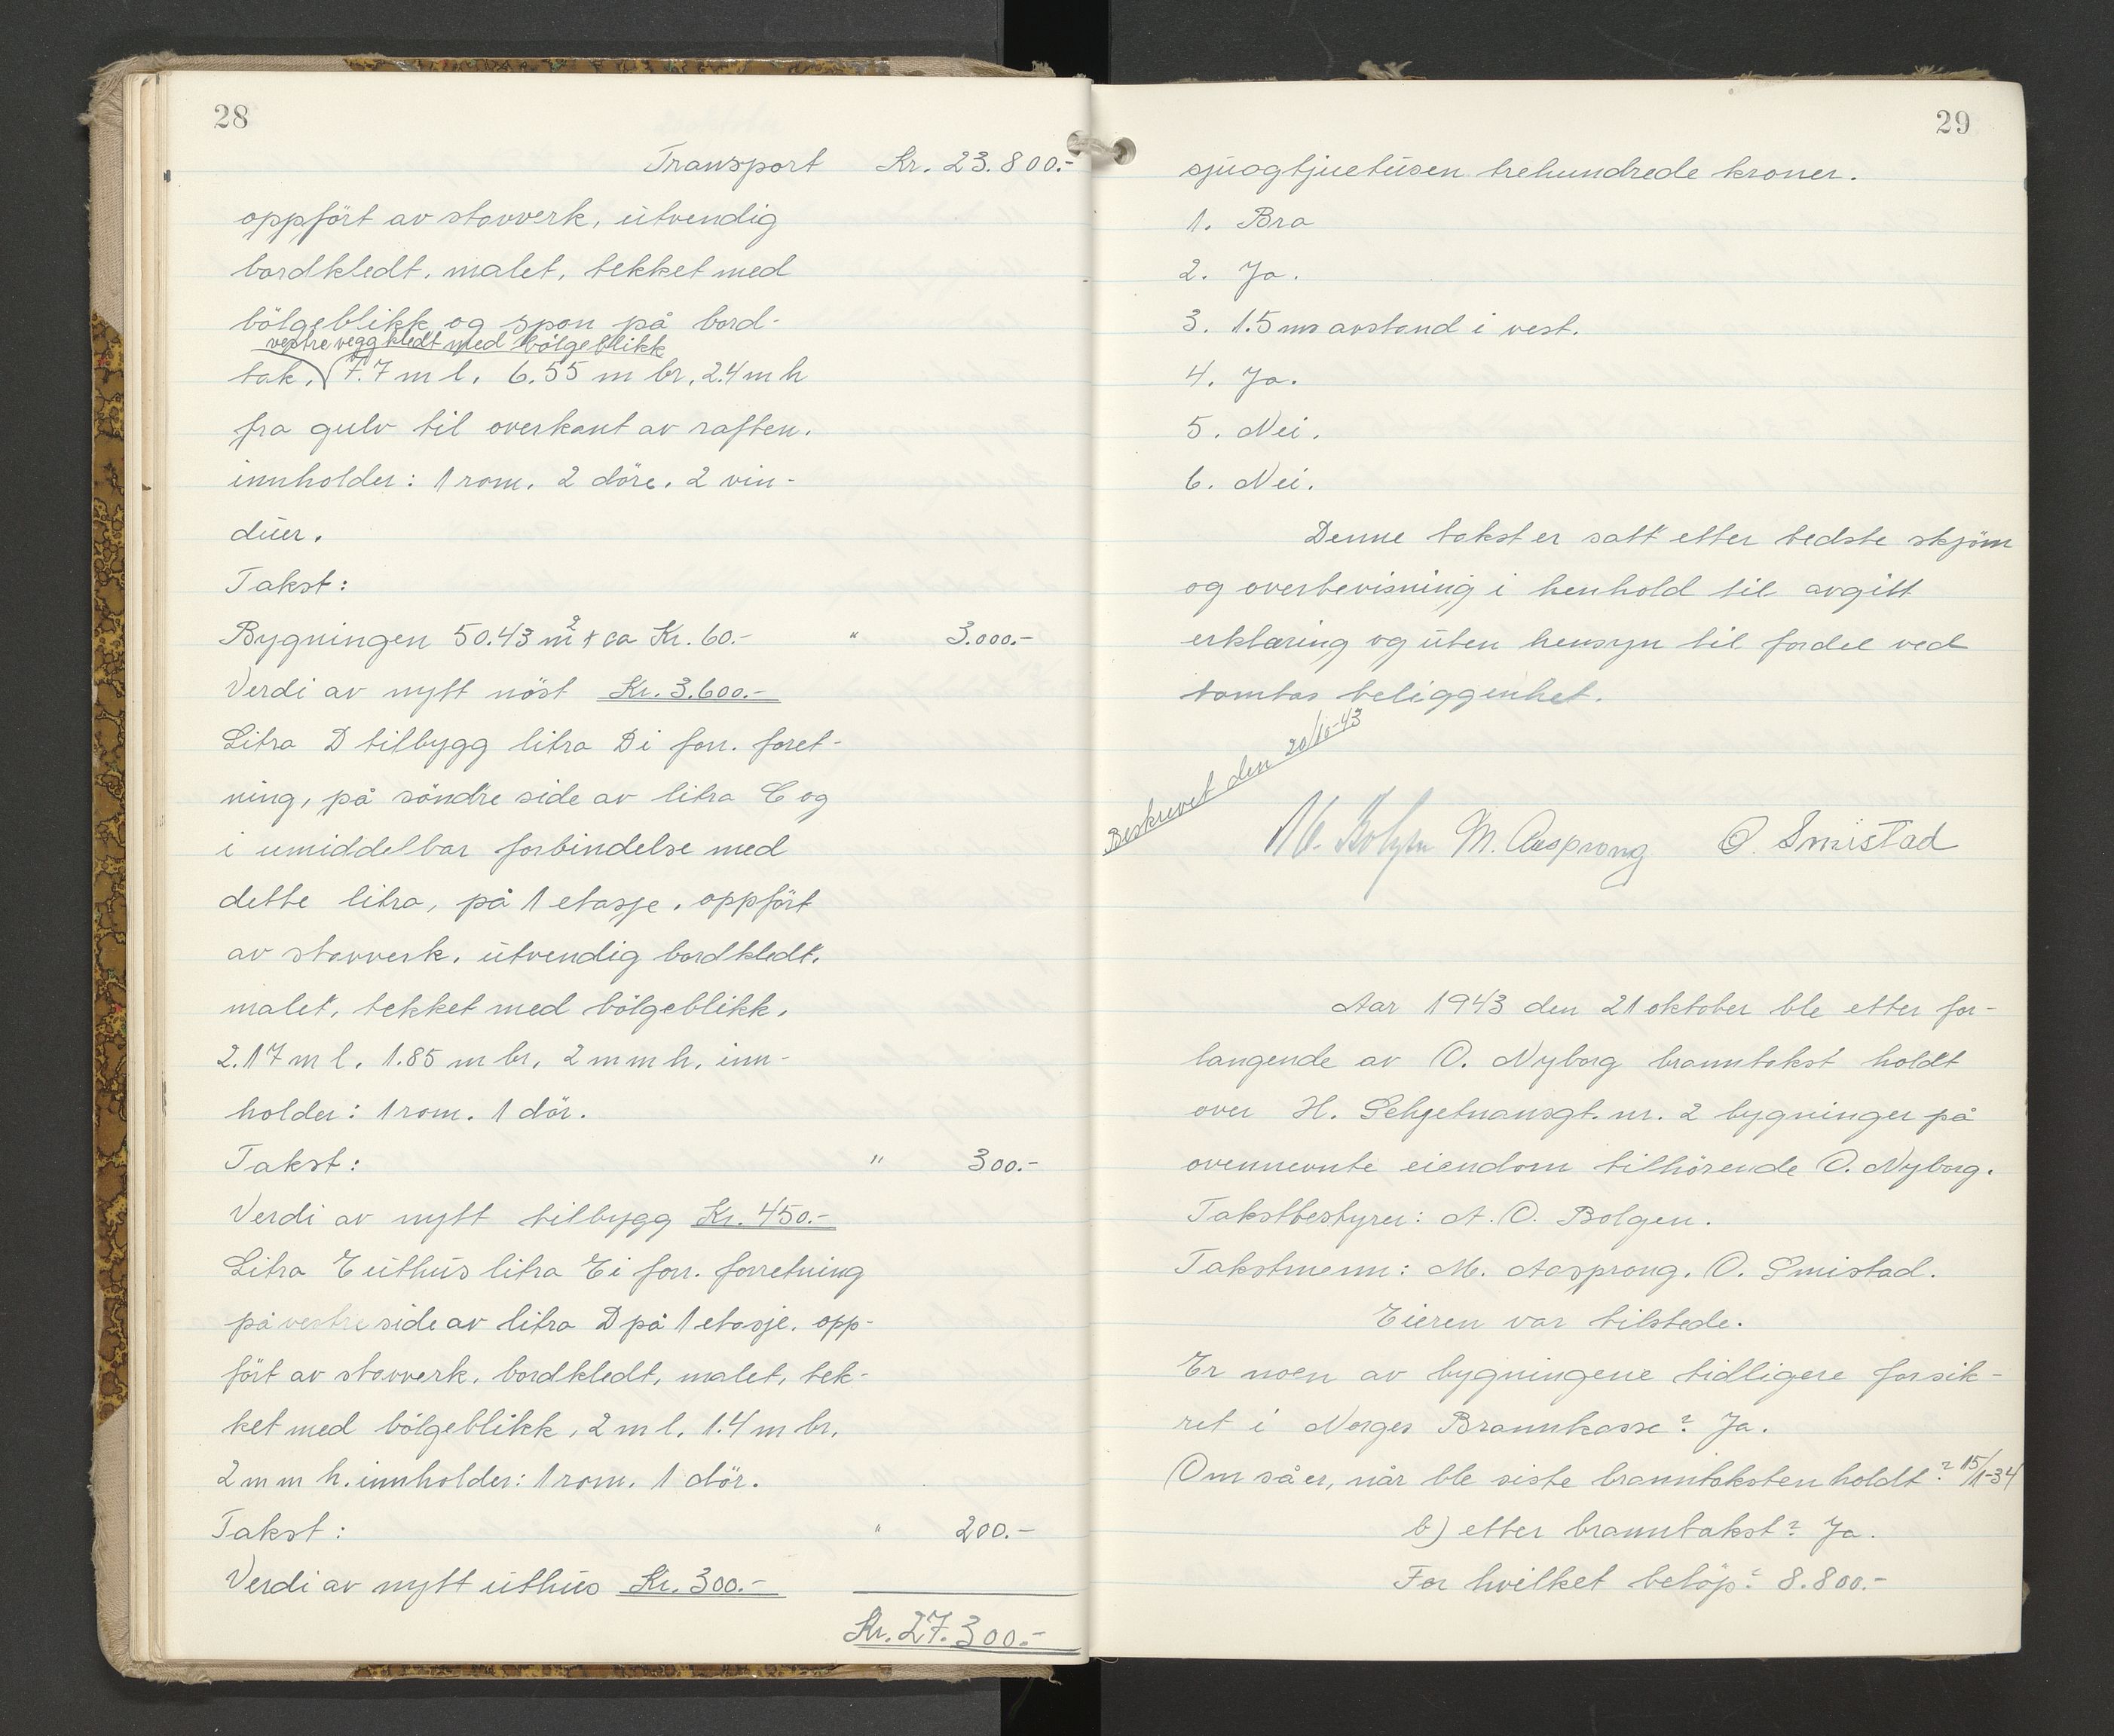 28
Transport Kr. 23.800.-
oppfört av stavverk, utvendig
bordkledt, malet, tekket med
bölgeblikk og spon på bord-
vestre vegg kledt med bölgeblikk
tak. 7.7 m l. 6.55 m br. 2.4 m h
fra gulv til overkant av raften.
innholder: 1 rom. 2 döre. 2 vin-
duer.
Takst:
Bygningen 50.43 m² + ca Kr. 60.- " 3.000.-
Verdi av nytt nöst Kr. 3.600.-
Litra D tilbygg litra D i forr. foret-
ning, på söndre side av litra C og
i umiddelbar forbindelse med
dette litra, på 1 etasje. oppfört
av stavverk. utvendig bordkledt.
malet, tekket med bölgeblikk.
2.17 m l. 1.85 m br. 2 m m h. inn-
holder: 1 rom. 1 dör.
Takst: " 300.-
Verdi av nytt tilbygg Kr. 450.-
Litra E uthus litra E i forr. forretning
på vestre side av litra D på 1 etasje. opp-
fört av stavverk. bordkledt, malet, tek-
ket med bölgeblikk, 2 m l. 1.4 m br.
2 m m h. innholder: 1 rom. 1 dör.
Takst: " 200.-
Verdi av nytt uthus Kr. 300.-
Kr. 27.300.-
29
sjuogtjuetusen trehundrede kroner.
1. Bra
2. Ja.
3. 1.5 m avstand i vest.
4. Ja.
5. Nei.
6. Nei.
Denne takst er satt etter bedste skjöm
og overbevisning i henhold til avgitt
erklæring og uten hensyn til fordel ved
tomtas beliggenhet.
Beskrevet den 20/10-43
M. Aasprong O. Smistad
Aar 1943 den 21 oktober ble etter for-
langende av O. Nyborg branntakst holdt
over H. Schjetnansgt. nr. 2 bygninger på
ovennevnte eiendom tilhörende O. Nyborg.
Takstbestyrer: A. O. Bolgen.
Takstmenn: M. Aasprong. O. Smistad.
Eieren var tilstede.
Er noen av bygningene tidligere forsik-
ret i Norges Brannkasse? Ja.
Om så er, når ble siste branntaksten holdt? 15/1-34
b) etter branntakst? Ja.
For hvilket belöp? 8.800.-